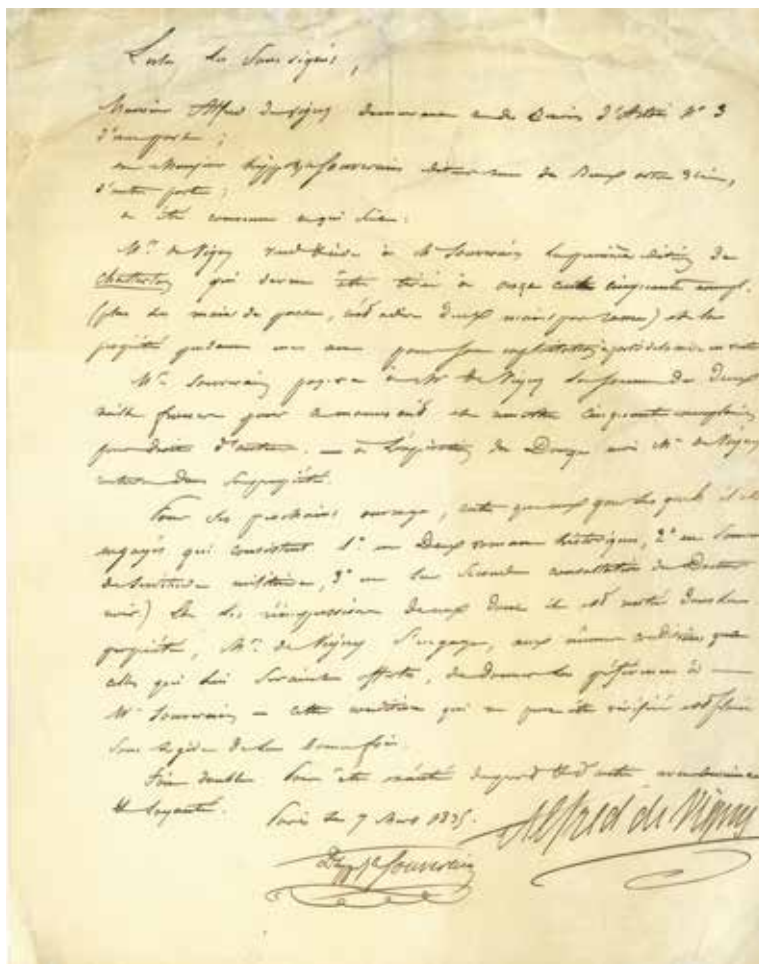 Entre les soussignés,
Monsieur Alfred de Vigny demeurant rue des Ecuries d'Artois N° 3
d'une part ;
et Monsieur Hippolyte Souverain éditeur rue des Beaux arts
d'autre part ;
a été convenu ce qui suit :
Mr. de Vigny vend à Mr Souverain la première édition de
Chatterton, qui devra être tiré à onze cent cinquante exempl.
(plus les mains de passe, c'est à dire deux mains par rame) et la
propriété pendant pour son exploitation
Mr. Souverain payera à Mr de Vigny la somme de deux
mille francs pour et cinquante exemplaires
pour droits d'auteur. — à l'expiration de Mr. de Vigny
rentre dans sa propriété.
Pour ses prochains ouvrages, autres que ceux pour lesquels il est
engagés qui consistent 1° en Deux romans historiques, 2° en
de Servitude militaire, 3° en la Seconde consultation du Docteur
noir) et les réimpressions de ceux dont il est rentré dans la
propriété, Mr. de Vigny s'engage, aux mêmes conditions que
celles qui lui seraient offertes, de donner la préférence à —
Mr Souverain — cette condition qui ne peut être vérifiée est placée
sous l'égide de la bonne foi.
Fait double pour être exécuté
et loyauté. Paris le 7 Mars 1835.
Alfred de Vigny
Hippte Souverain